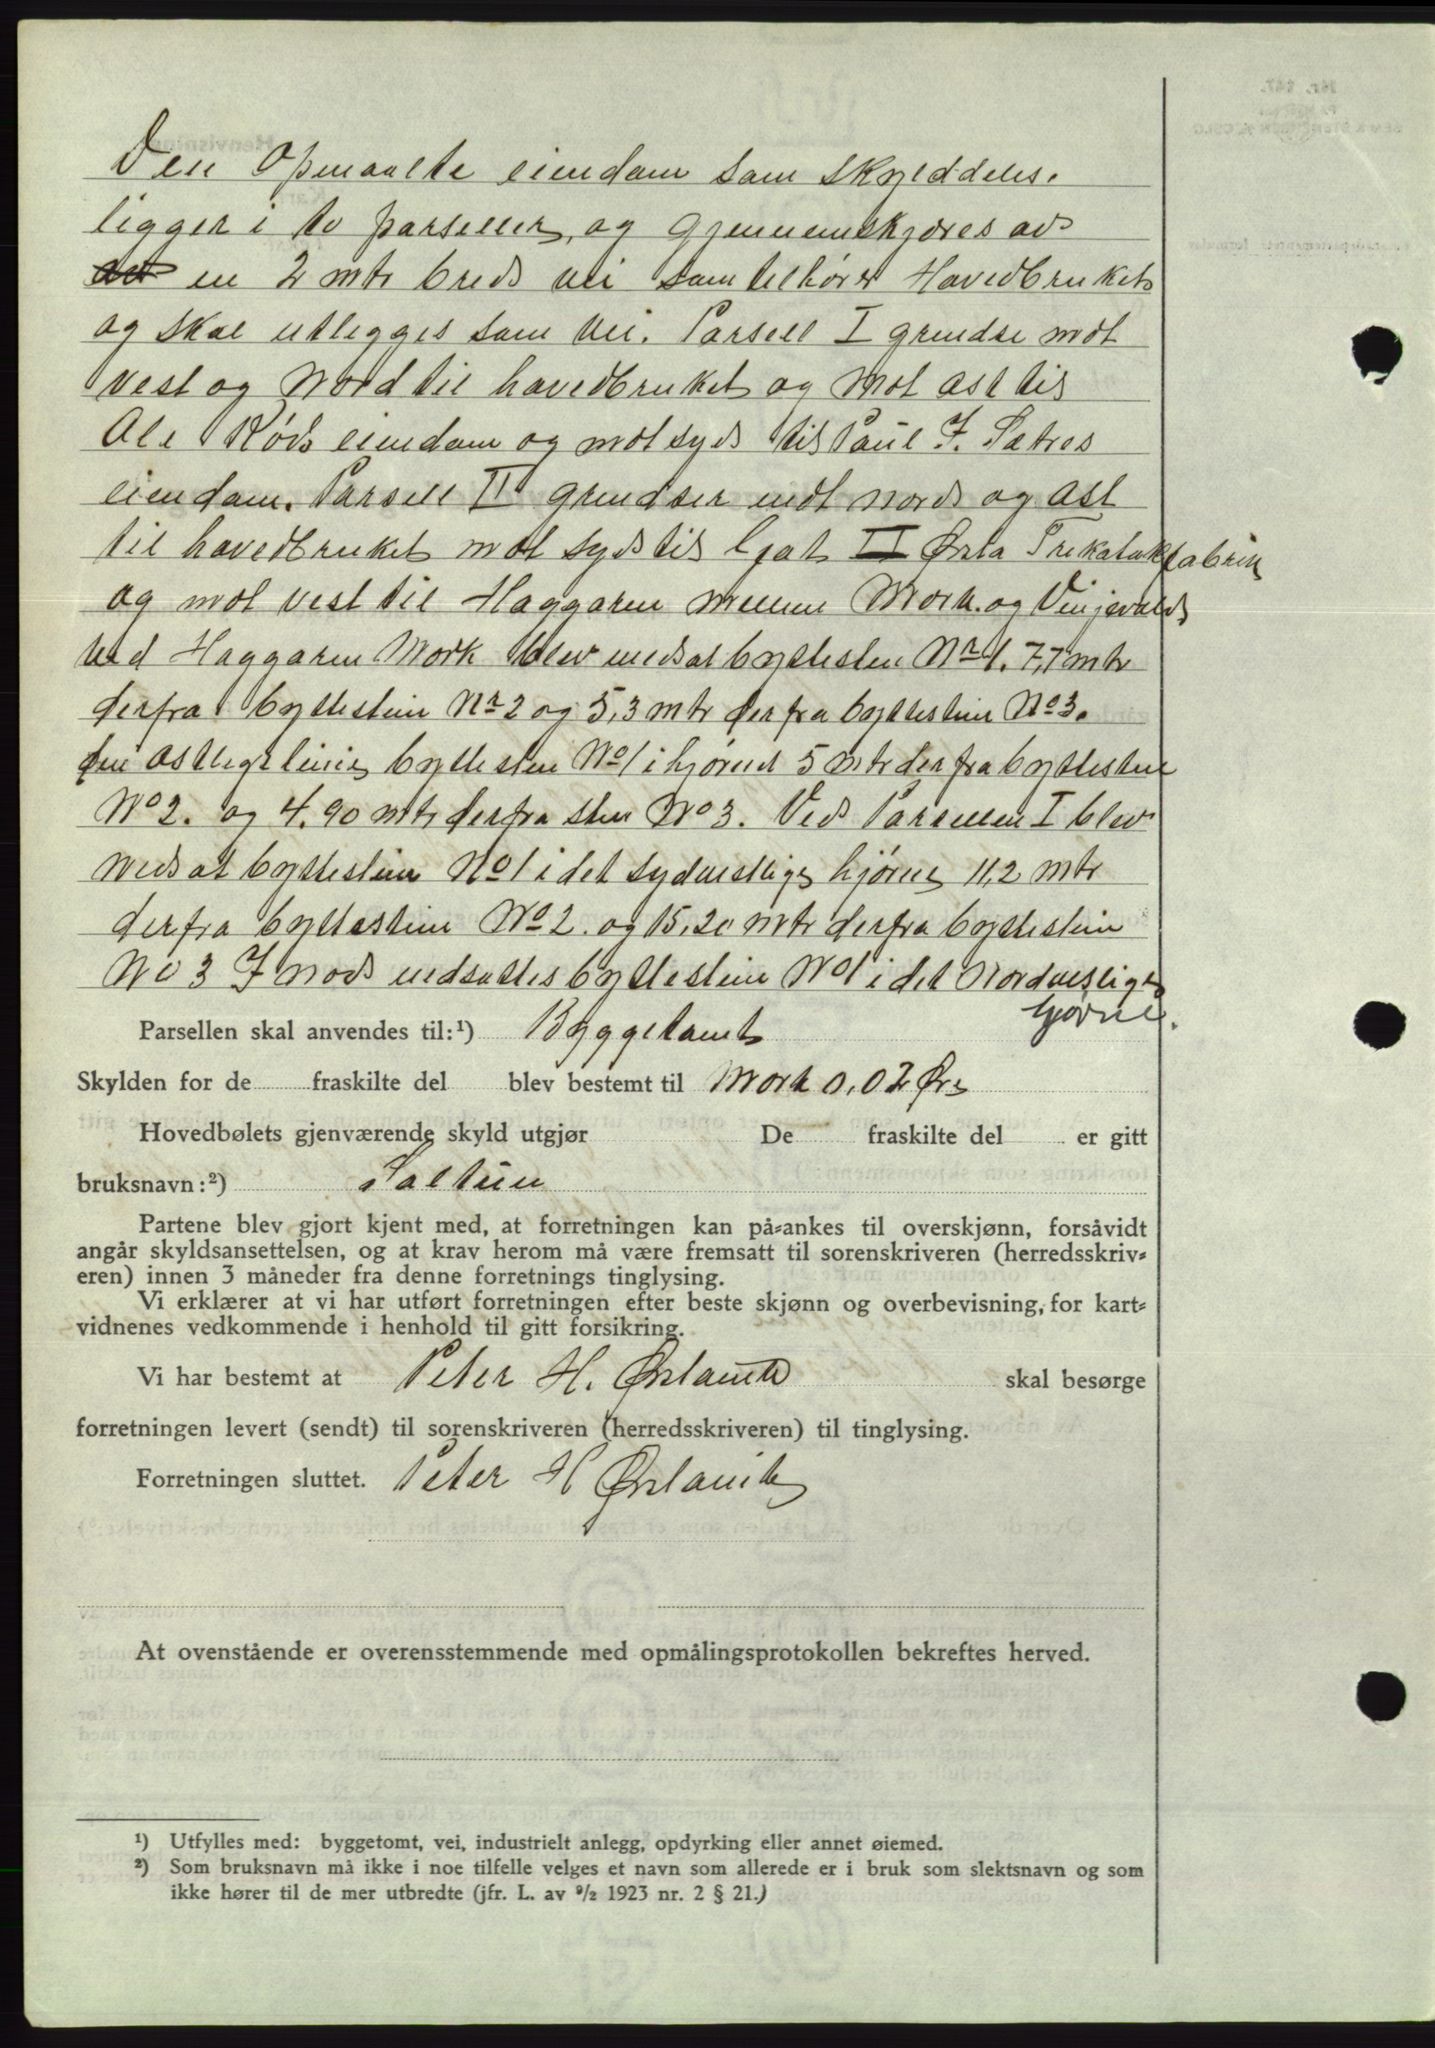 Den Opmaalte eiendom som skylddeles.
ligger i to parseller, og gjennemskjæres av
en 2 mtr bred vei som tilhører Hovedbruket
og skal utlegges som vei. Parsell I grendse mot
vest og Nord til hovedbruket og mot ost til
Ole Røds eiendom og mot syd til Paul J. Sætres
eiendom. Parsell II grendser mot nord og ost
til hovedbruket mot syd til II Ørsta Trikotasjefabrik
og mot vest til Haggaren mellem Mork og Vinjevolds
ved Haggaren Mork blev nedsat byttesten Nr 1. 7,7 mtr
derfra byttestein Nr 2 og 5,3 mtr derfra byttestein No 3.
den ostlige linie byttesten No 1 i hjørnet 5 mtr derfra byttestein
No 2. og 4,90 mtr derfra sten No 3. Ved Parsellen I blev
nedsat byttestein No 1 i det sydvestlige hjørne 11,2 mtr
derfra byttestein No 2 og 15,20 mtr derfra byttestein
No 3 I nord nedsattes byttestein No 1 i det Nordvestlige
hjørne.
Parsellen skal anvendes til:¹) Byggetomt
Skylden for de fraskilte del blev bestemt til Mork 0,02 Øre
Hovedbølets gjenværende skyld utgjør De fraskilte del er gitt
bruksnavn:²) Soltun
Partene blev gjort kjent med, at forretningen kan på-ankes til overskjønn, forsåvidt
angår skyldsansettelsen, og at krav herom må være fremsatt til sorenskriveren (herredsskriv-
eren) innen 3 måneder fra denne forretnings tinglysing.
Vi erklærer at vi har utført forretningen efter beste skjønn og overbevisning, for kart-
vidnenes vedkommende i henhold til gitt forsikring.
Vi har bestemt at Peter H. Ørstavik skal besørge
forretningen levert (sendt) til sorenskriveren (herredsskriveren) til tinglysing.
Forretningen sluttet. Peter H Ørstavik
At ovenstående er overensstemmende med opmålingsprotokollen bekreftes herved.
¹) Utfylles med: byggetomt, vei, industrielt anlegg, opdyrking eller annet øiemed.
²) Som bruksnavn må ikke i noe tilfelle velges et navn som allerede er i bruk som slektsnavn og som
ikke hører til de mer utbredte (jfr. L. av ⁹/₂ 1923 nr. 2 § 21.)